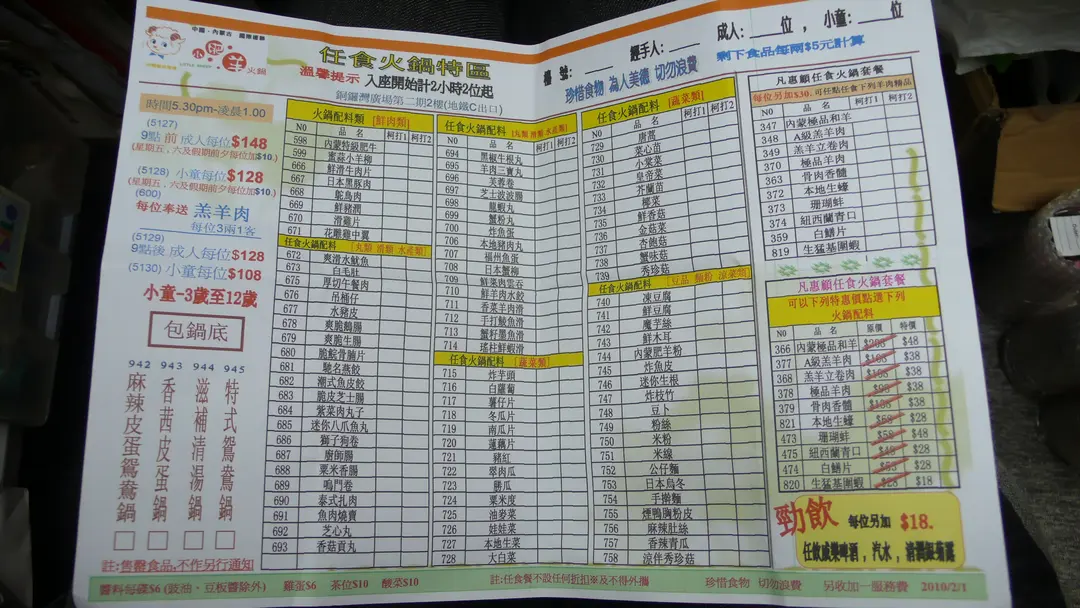 中國·內蒙古
小肥羊火鍋
LITTLE SHEEP
任食火鍋特區
溫馨提示 入座開始計2小時2位起
銅鑼灣廣場第二期2樓(地鐵C出口)
檯號: 經手人: 成人: 位, 小童: 位
珍惜食物 為人美德 切勿浪費
剩下食品每兩$5元計算
時間5.30pm-凌晨1.00
(5127)
9點前 成人每位$148
(星期五,六及假期前夕每位加$10.)
(5128) 小童每位$128
(星期五,六及假期前夕每位加$10.)
(600)
每位奉送 羔羊肉
每位3兩1客
(5129)
9點後 成人每位$128
(5130) 小童每位$108
小童-3歲至12歲
包鍋底
942 麻辣皮蛋鴛鴦鍋
943 香茜皮蛋鍋
944 滋補清湯鍋
945 特式鴛鴦鍋
註:售罄食品,不作另行通知
火鍋配料類 [鮮肉類]
N0 品名 柯打1 柯打2
598 內蒙特級肥牛
599 蜜蒜小羊柳
666 鮮滑牛肉片
667 日本黑豚肉
668 鴕鳥肉
669 鮮豬潤
670 滑雞片
671 花雕雞中翼
任食火鍋配料 [丸類 滑類 水產類]
672 爽滑水魷魚
673 白毛肚
675 厚切午餐肉
676 吊桶仔
677 水豬皮
678 爽脆鵝腸
679 爽脆生腸
680 脆鯇骨腩片
681 馳名燕餃
682 潮式魚皮餃
683 脆皮芝士腸
684 紫菜肉丸子
685 迷你八爪魚丸
686 獅子狗卷
687 廚師腸
688 粟米香腸
689 鳴門卷
690 泰式扎肉
691 魚肉燒賣
692 芝心丸
693 香菇貢丸
任食火鍋配料 [丸類 滑類 水產類]
N0 品名 柯打1 柯打2
694 黑椒牛根丸
695 羊肉三寶丸
696 芙蓉卷
697 芝士波波腸
698 龍蝦丸
699 蟹粉丸
700 炸魚蛋
706 本地豬肉丸
707 福州魚蛋
708 日本蟹柳
709 鮮菜肉雲吞
710 鮮羊肉水餃
711 香菜羊肉滑
712 手打鯪魚滑
713 蟹籽墨魚滑
714 瑤柱鮮蝦滑
任食火鍋配料 [蔬菜類]
715 炸芋頭
716 白蘿蔔
717 薯仔片
718 冬瓜片
719 南瓜片
720 蓮藕片
721 豬紅
722 翠肉瓜
723 勝瓜
724 粟米度
725 油麥菜
726 娃娃菜
727 本地生菜
728 大白菜
任食火鍋配料 [蔬菜類]
N0 品名 柯打1 柯打2
729 唐蒿
730 菜心苗
731 小棠菜
732 皇帝菜
733 芥蘭苗
734 椰菜
735 鮮香菇
736 金菇菜
737 杏鮑菇
738 蟹味菇
739 秀珍菇
任食火鍋配料 [豆品 麵粉 涼菜類]
740 凍豆腐
741 鮮豆腐
742 魔芋絲
743 鮮木耳
744 內蒙肥羊粉
745 炸魚皮
746 迷你生根
747 炸枝竹
748 豆卜
749 粉絲
750 米粉
751 米線
752 公仔麵
753 日本烏冬
754 手擀麵
755 煙鴨胸粉皮
756 麻辣肚絲
757 香辣青瓜
758 涼伴秀珍菇
凡惠顧任食火鍋套餐
每位另加$30. 可任點任食下列羊肉精品
N0 品名 柯打1 柯打2
347 內蒙極品和羊
348 A級羔羊肉
349 羔羊立卷肉
370 極品羊肉
363 骨肉香髓
372 本地生蠔
373 珊瑚蚌
374 紐西蘭青口
359 白鱔片
819 生猛基圍蝦
凡惠顧任食火鍋套餐
可以下列特惠價點選下列
火鍋配料
N0 品名 原價 特價
366 內蒙極品和羊 $48
377 A級羔羊肉 $38
368 羔羊立卷肉 $38
378 極品羊肉 $38
379 骨肉香髓 $38
821 本地生蠔 $28
473 珊瑚蚌 $48
475 紐西蘭青口 $28
474 白鱔片 $28
820 生猛基圍蝦 $18
勁飲 每位另加 $18.
任飲威樂啤酒,汽水,
醬料每碟$6 (豉油、豆板醬除外) 雞蛋$6 茶位$10 酸菜$10 註:任食餐不設任何折扣※及不得外攜 珍惜食物 切勿浪費 另收加一服務費 2010/2/1